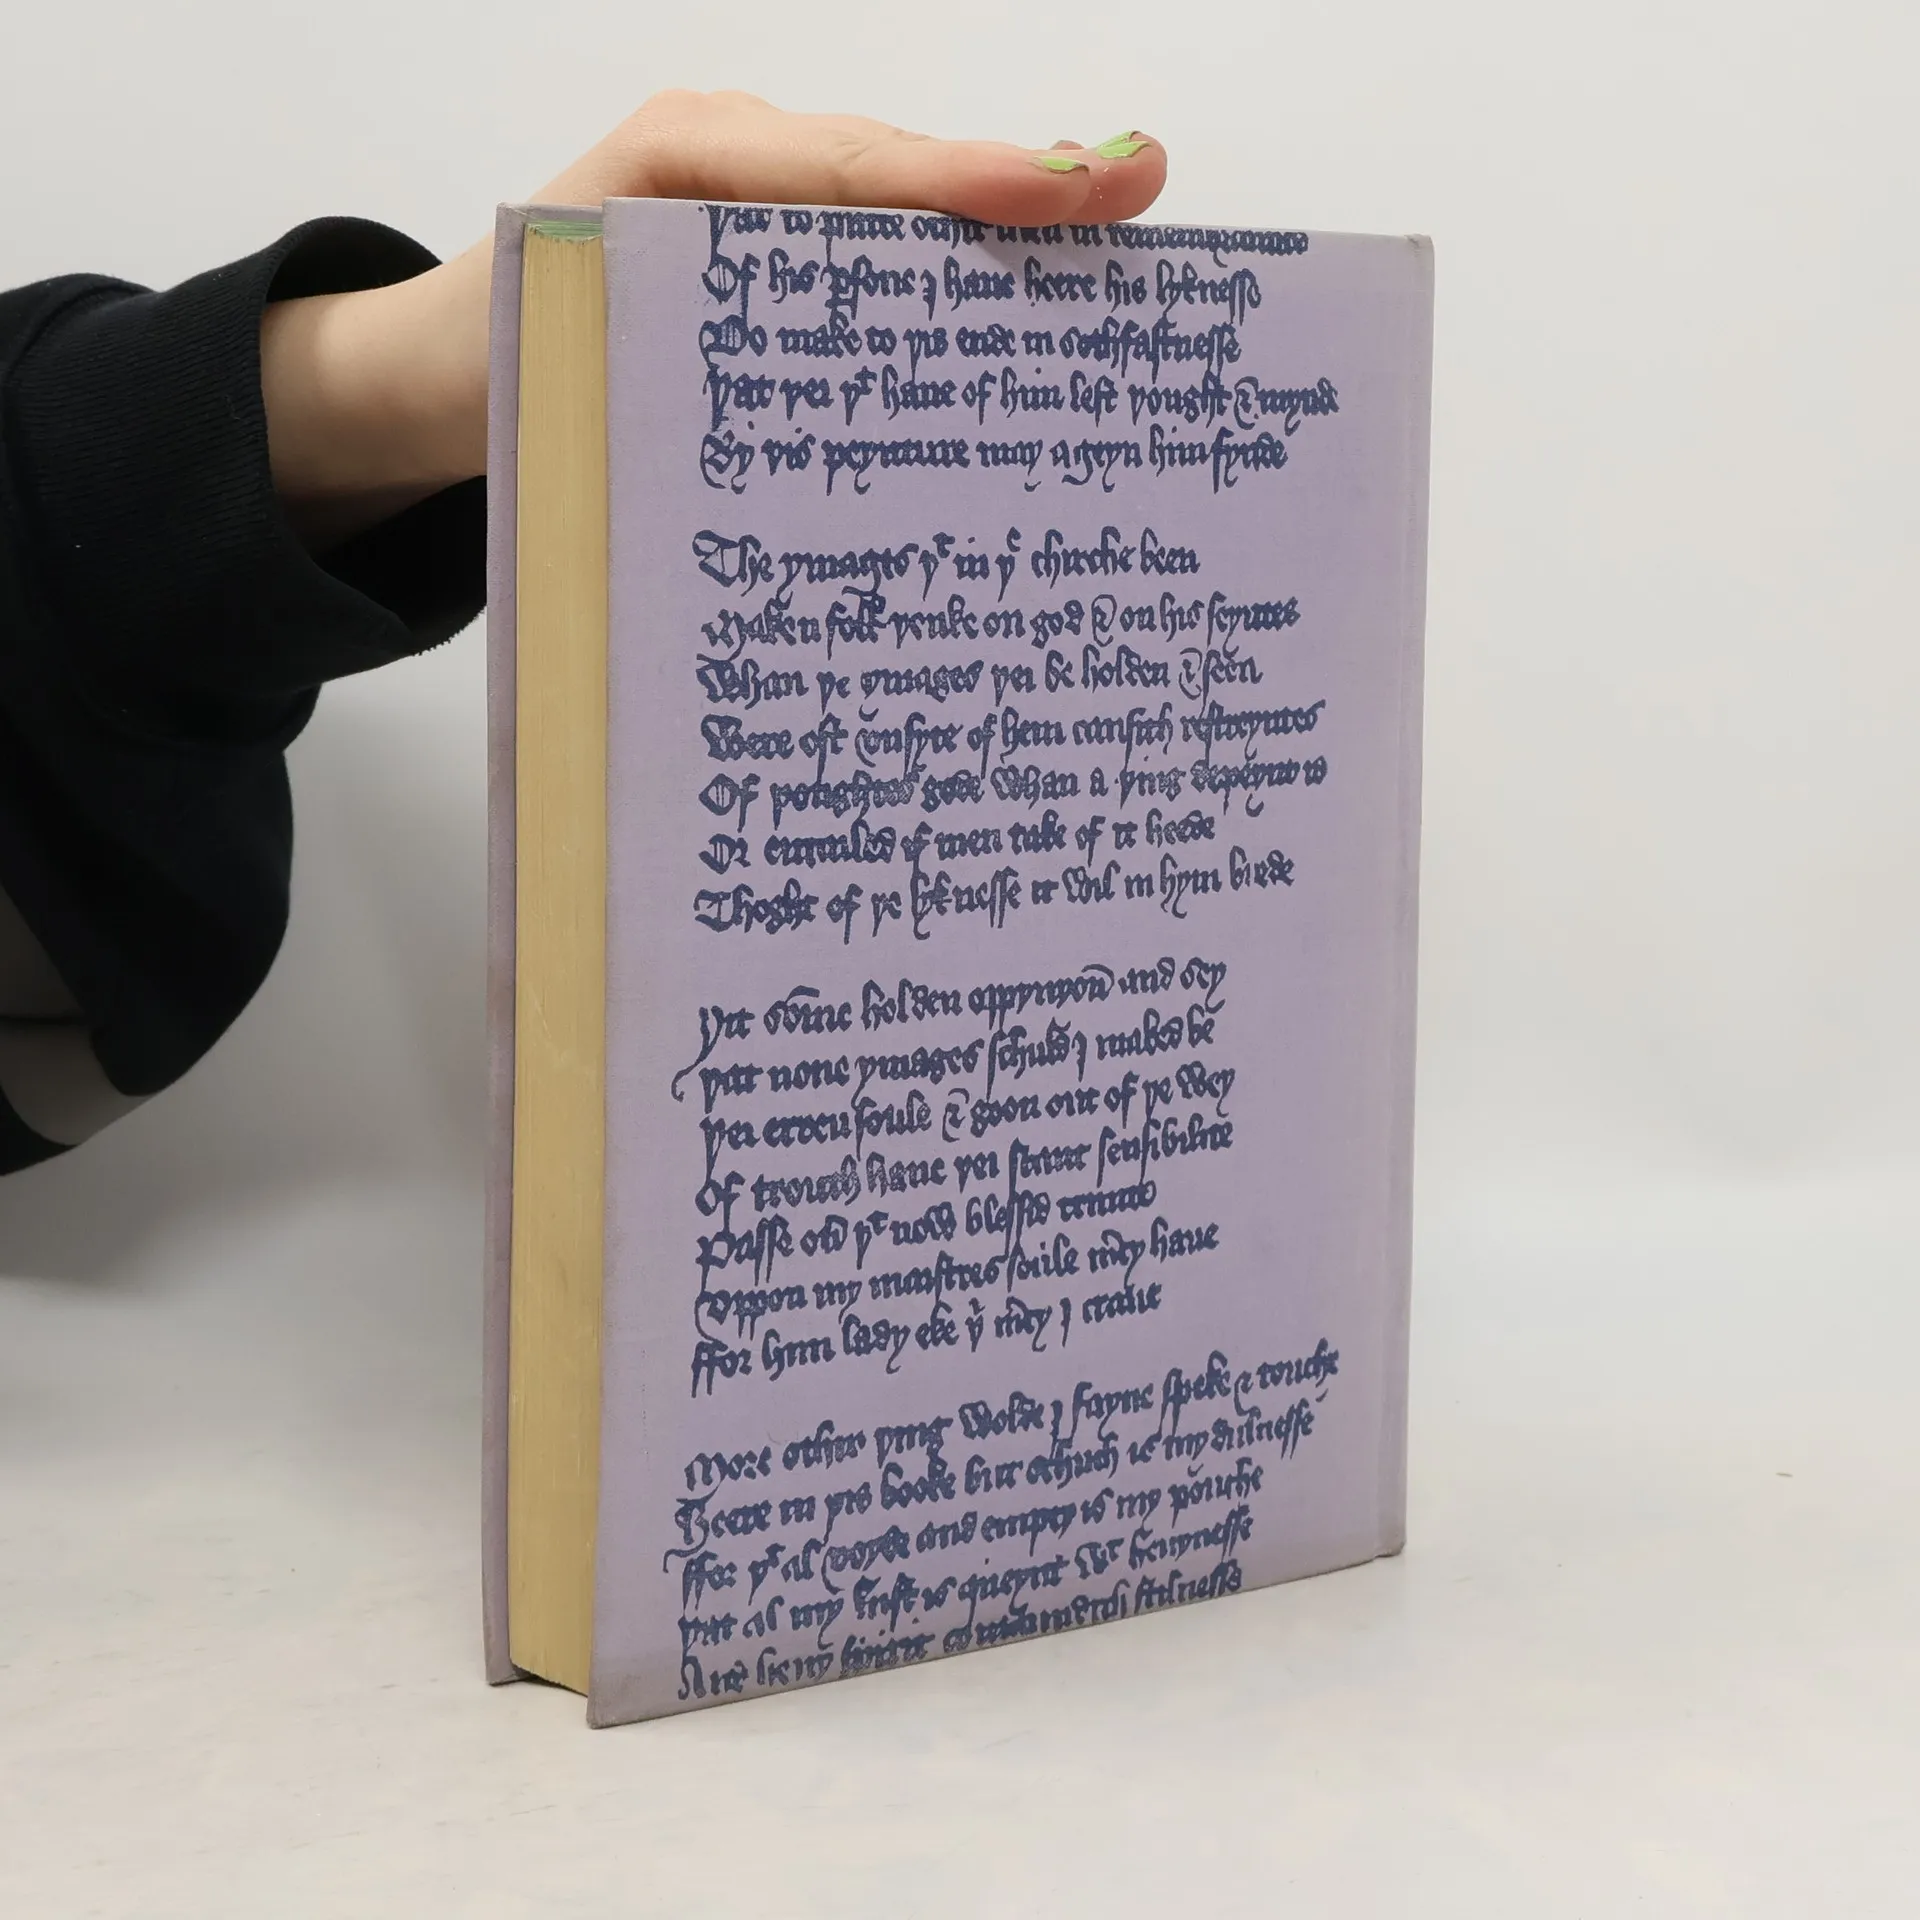 Þat to putte othir men in remembraunce
Of his psone I haue heere his lyknesse
Do make to þis ende in sothfastnesse
Þat þei þt haue of him left þought & mynde
By þis peynture may ageyn him fynde
The ymages þt in þe chirche been
Maken folk þenke on god & on his seyntes
Whan þe ymages þei be holden & seen
Were oft vnsyte of hem causith restreyntes
Of þoughtes gode whan a þing depeynt is
Or entailed if men take of it heede
Thoght of þe lyknesse it wil in hym brede
Yit some holden oppynyon and sey
Þat none ymages schuld I maked be
Þei erren foule & goon out of þe wey
Of trouth haue þei scant sensibilite
Passe ou þt now blessid trinite
Vppon my maistres soule mcy haue
ffor him lady eke þi mcy I craue
More othir þing wolde I fayne speke & touche
Heere in þis booke but schuch is my dulnesse
ffor þt al voyde and empty is my pouche
Þat al my lust is queynt wt heuynesse
And heuy spirit comaundith stilnesse